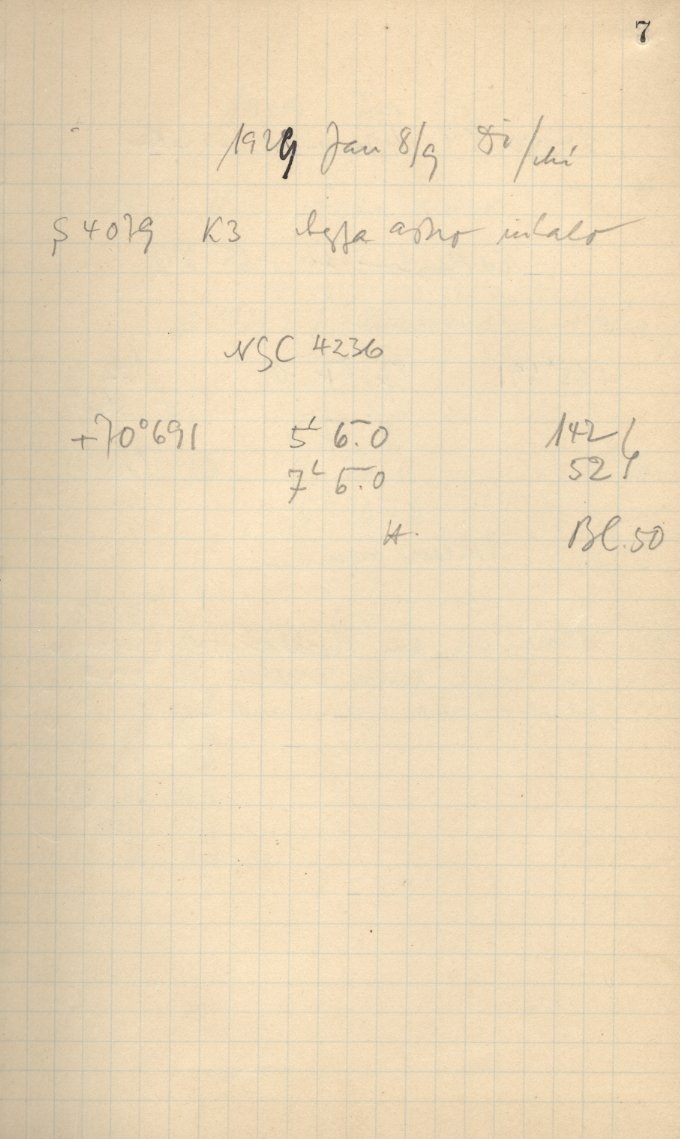 7
1929 Jan 8/9 Di/Mi
S 4079 K3 Agfa astro
NGC 4236
+70°691 5L 6.0 142
7L 6.0 52
H. Bl. 50